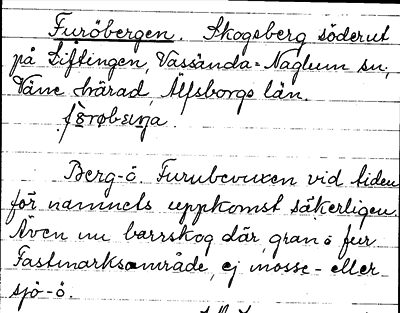 Furöbergen. Skogsberg söderut
på Siftingen, Vassända-Naglum sn,
Väne härad, Älfsborgs län.
Berg-ö. Furubevuxen vid tiden
för namnets uppkomst säkerligen.
Även nu barrskog där, gran o fur.
Fastmarksområde, ej mosse- eller
sjö-ö.